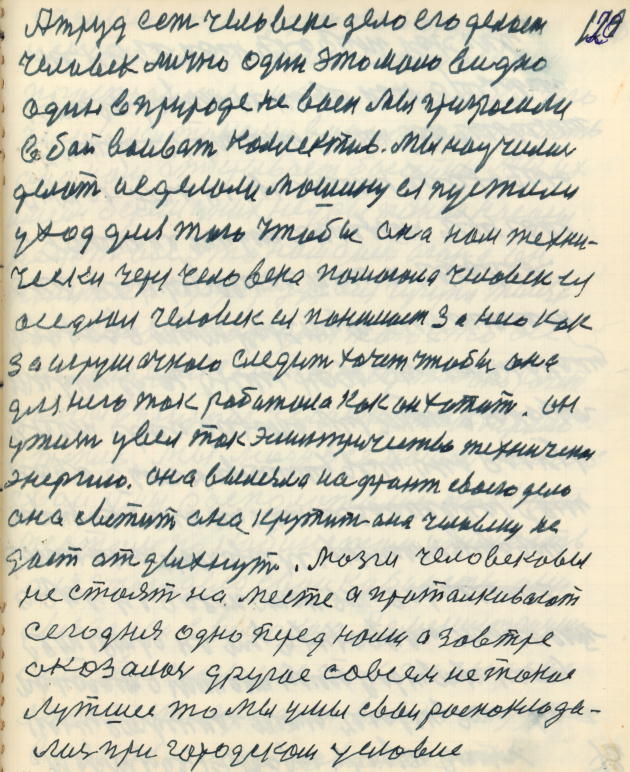 129
А труд ест человека дело его делает
человек лично один этого мало видно
один в природе не воен мы пригросили
в бой воиват коллектив. Мы научили
делат и сделали машину ея пустили
уход для того чтобы она нам техни-
чески через человека помогала человек ея
оседлал человек ея понимает за нею как
за игрушачкою следит хочет чтобы она
для него так работала как он хотит. он
увел так электричество техническ
энергию. она вышла на фронт своего дело
она светит она крутит она человеку не
дает отдвихнут. мозги человековы
не стоят на месте а проталкивают
сегодня одно перед нами а завтре
оказалася другое совсем не такое
лутшее то мы умы свои роскклада-
ли при городском условие